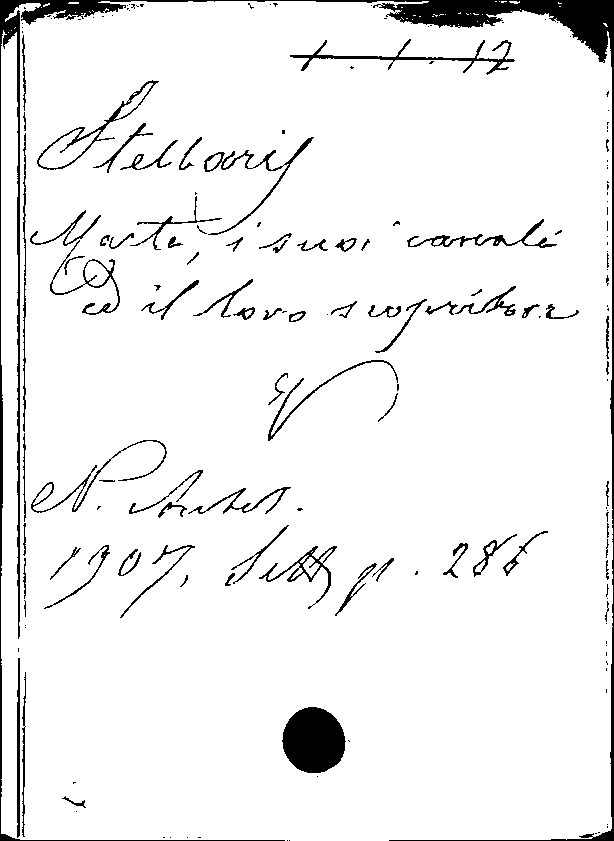 1. 1. 12
Marte, i suoi canali
ed il loro scopritore
N. Antol.
1907, Sett p. 286